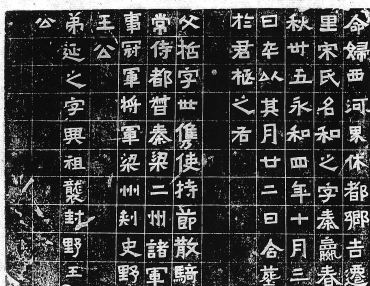 命婦西河界休都鄉吉遷
里宋氏名和之字秦嬴春
秋卅五永和四年十月三
日卒以其月廿二日合葬
於君柩之右
父悊字世儁使持節散騎
常侍都督秦梁二州諸軍
事冠軍將軍梁州刾史野
王公
弟延之字興祖襲封野王
公